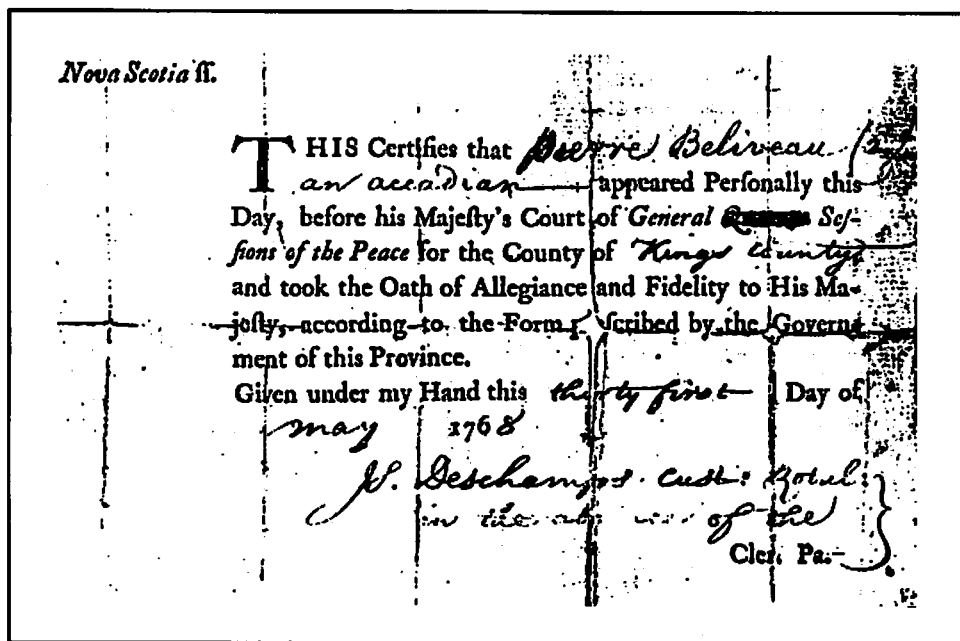 Nova Scotia ſſ.
THIS Certifies that Pierre Beliveau (2)
an accadian appeared Perſonally this
Day, before his Majeſty's Court of General Seſ-
ſions of the Peace for the County of Kings County
and took the Oath of Allegiance and Fidelity to His Ma-
jeſty, according to the Form ſcribed by the Govern-
ment of this Province.
Given under my Hand this thirty first Day of
may 1768
Deschamps Cust: Rotul:
in the of the
Cler. Pa.